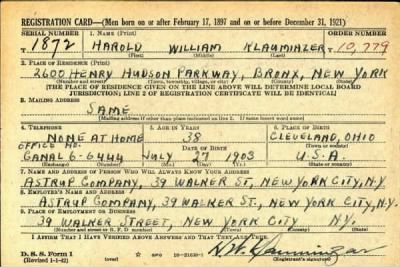 REGISTRATION CARD—(Men born on or after February 17, 1897 and on or before December 31, 1921)
SERIAL NUMBER 1. NAME (Print) ORDER NUMBER
1872 HAROLD WILLIAM KLAUMINZER 10,779
(First) (Middle) (Last)
2. PLACE OF RESIDENCE (Print)
2600 HENRY HUDSON PARKWAY, BRONX, NEW YORK
(Number and street) (Town, township, village, or city) (County) (State)
[THE PLACE OF RESIDENCE GIVEN ON THE LINE ABOVE WILL DETERMINE LOCAL BOARD
JURISDICTION; LINE 2 OF REGISTRATION CERTIFICATE WILL BE IDENTICAL]
3. MAILING ADDRESS
SAME
[Mailing address if other than place indicated on line 2. If same insert word same]
4. TELEPHONE 5. AGE IN YEARS 6. PLACE OF BIRTH
NONE AT HOME 38 CLEVELAND, OHIO
OFFICE NO. DATE OF BIRTH (Town or county)
CANAL 6-6444 JULY 27 1903 U.S.A
(Exchange) (Number) (Mo.) (Day) (Yr.) (State or country)
7. NAME AND ADDRESS OF PERSON WHO WILL ALWAYS KNOW YOUR ADDRESS
ASTRUP COMPANY, 39 WALKER ST, NEW YORK CITY, N.Y.
8. EMPLOYER'S NAME AND ADDRESS
ASTRUP COMPANY, 39 WALKER ST, NEW YORK CITY, N.Y.
9. PLACE OF EMPLOYMENT OR BUSINESS
39 WALKER STREET, NEW YORK CITY N.Y.
(Number and street or R. F. D. number) (Town) (County) (State)
I AFFIRM THAT I HAVE VERIFIED ABOVE ANSWERS AND THAT THEY ARE TRUE.
D. S. S. Form 1
(Revised 1-1-42) (over) GPO 16-21630-1
H.W. Klauminzer
(Registrant's signature)